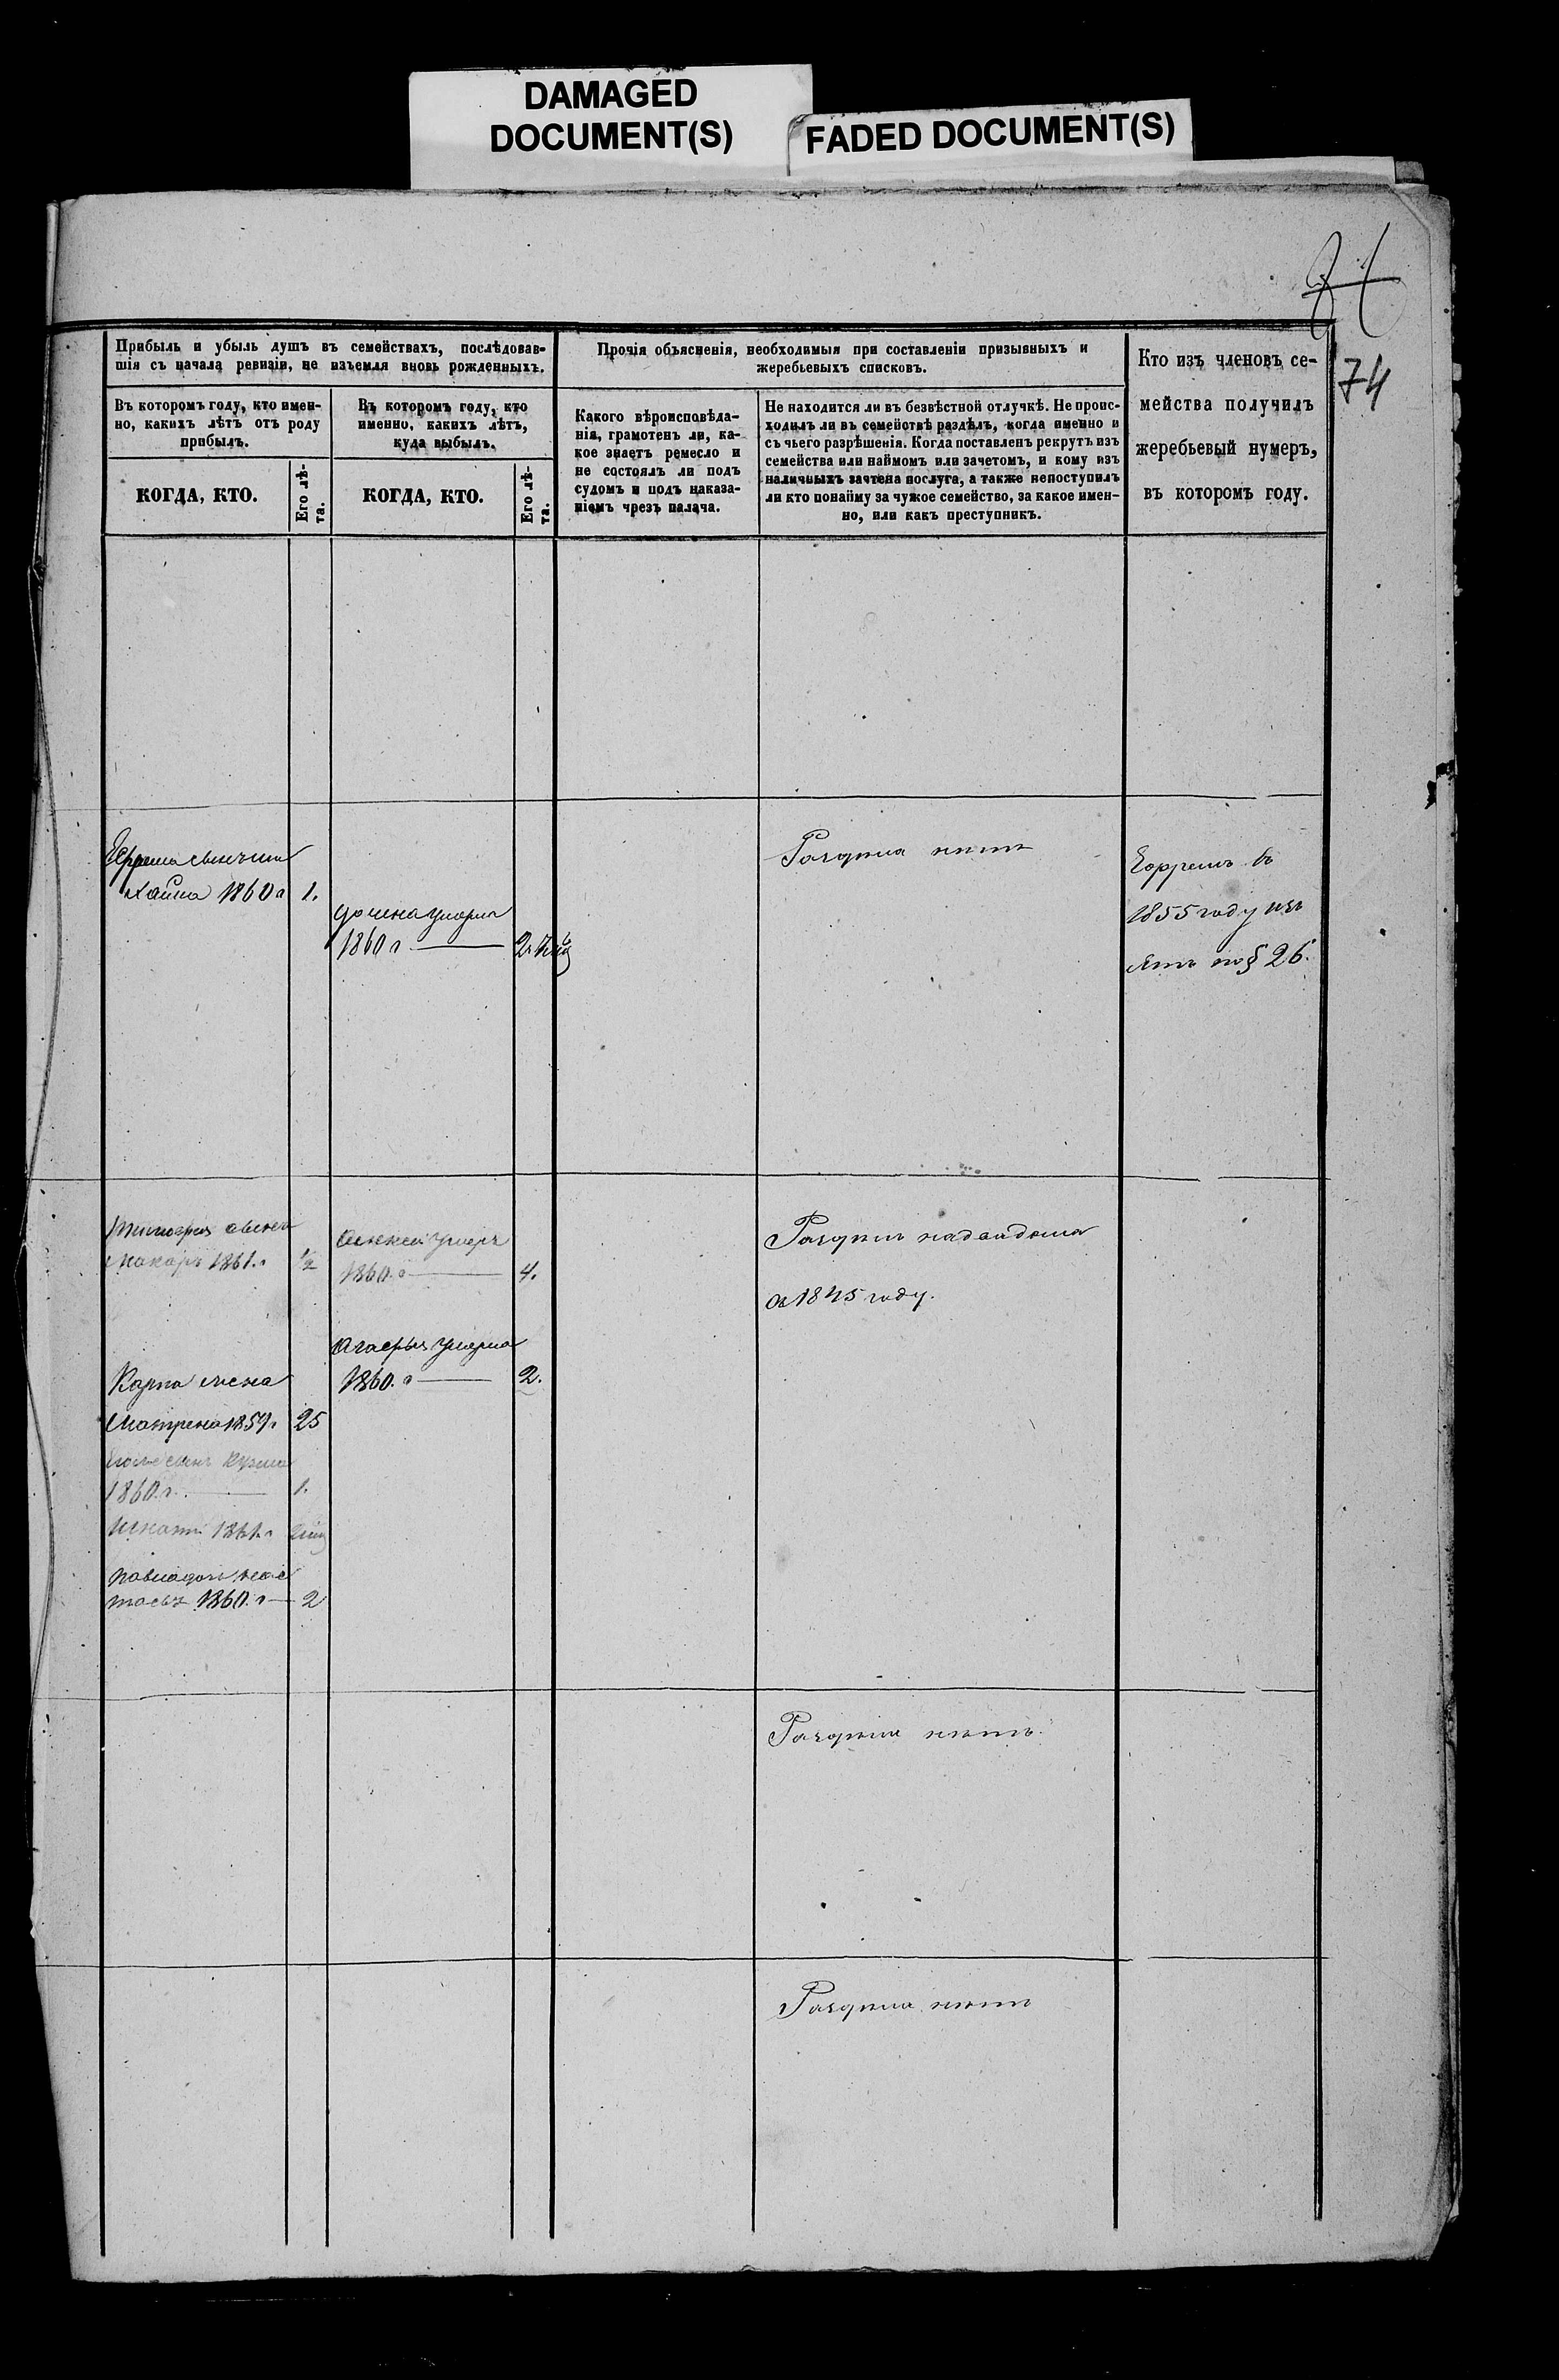 DAMAGED
DOCUMENT(S)
FADED DOCUMENT(S)
74
Прибыль и убыль душъ въ семействахъ, послѣдовав-
шія съ начала ревизіи, не изъемля вновь рожденныхъ.
Въ которомъ году, кто имен-
но, какихъ лѣтъ отъ роду
прибылъ.
КОГДА, КТО.
Его лѣ-
та.
Въ которомъ году, кто
именно, какихъ лѣтъ,
куда выбылъ.
КОГДА, КТО.
Его лѣ-
та.
Прочія объясненія, необходимыя при составленіи призывныхъ и
жеребьевыхъ списковъ.
Какого вѣроисповѣда-
нія, грамотенъ ли, ка-
кое знаетъ ремесло и
не состоялъ ли подъ
судомъ и подъ наказа-
ніемъ чрезъ палача.
Не находится ли въ безвѣстной отлучкѣ. Не проис-
ходилъ ли въ семействѣ раздѣлъ, когда именно и
съ чьего разрѣшенія. Когда поставленъ рекрутъ изъ
семейства или наймомъ или зачетомъ, и кому изъ
наличныхъ зачтена послуга, а также непоступилъ
ли кто понайму за чужое семейство, за какое имен-
но, или какъ преступникъ.
Кто изъ членовъ се-
мейства получилъ
жеребьевый нумеръ,
въ которомъ году.
1860 1.
умерла
1860 г 2
Раздѣла нѣтъ
Ефремъ въ
1855 году изъ
ятъ по § 26.
Тимофея сынъ
Макаръ 1861. г ½
Алексей умеръ
1860. г 4.
Раздѣлъ
1845 году.
Агафья умерла
1860. г 2.
Карпа жена
Матрена 1859 г 25
сынъ Кузма
1860. г. 1.
Игнатъ 1861. г
Павла дочь Нас
тасья 1860. г 2
Раздѣла нѣтъ.
Раздѣла нѣтъ